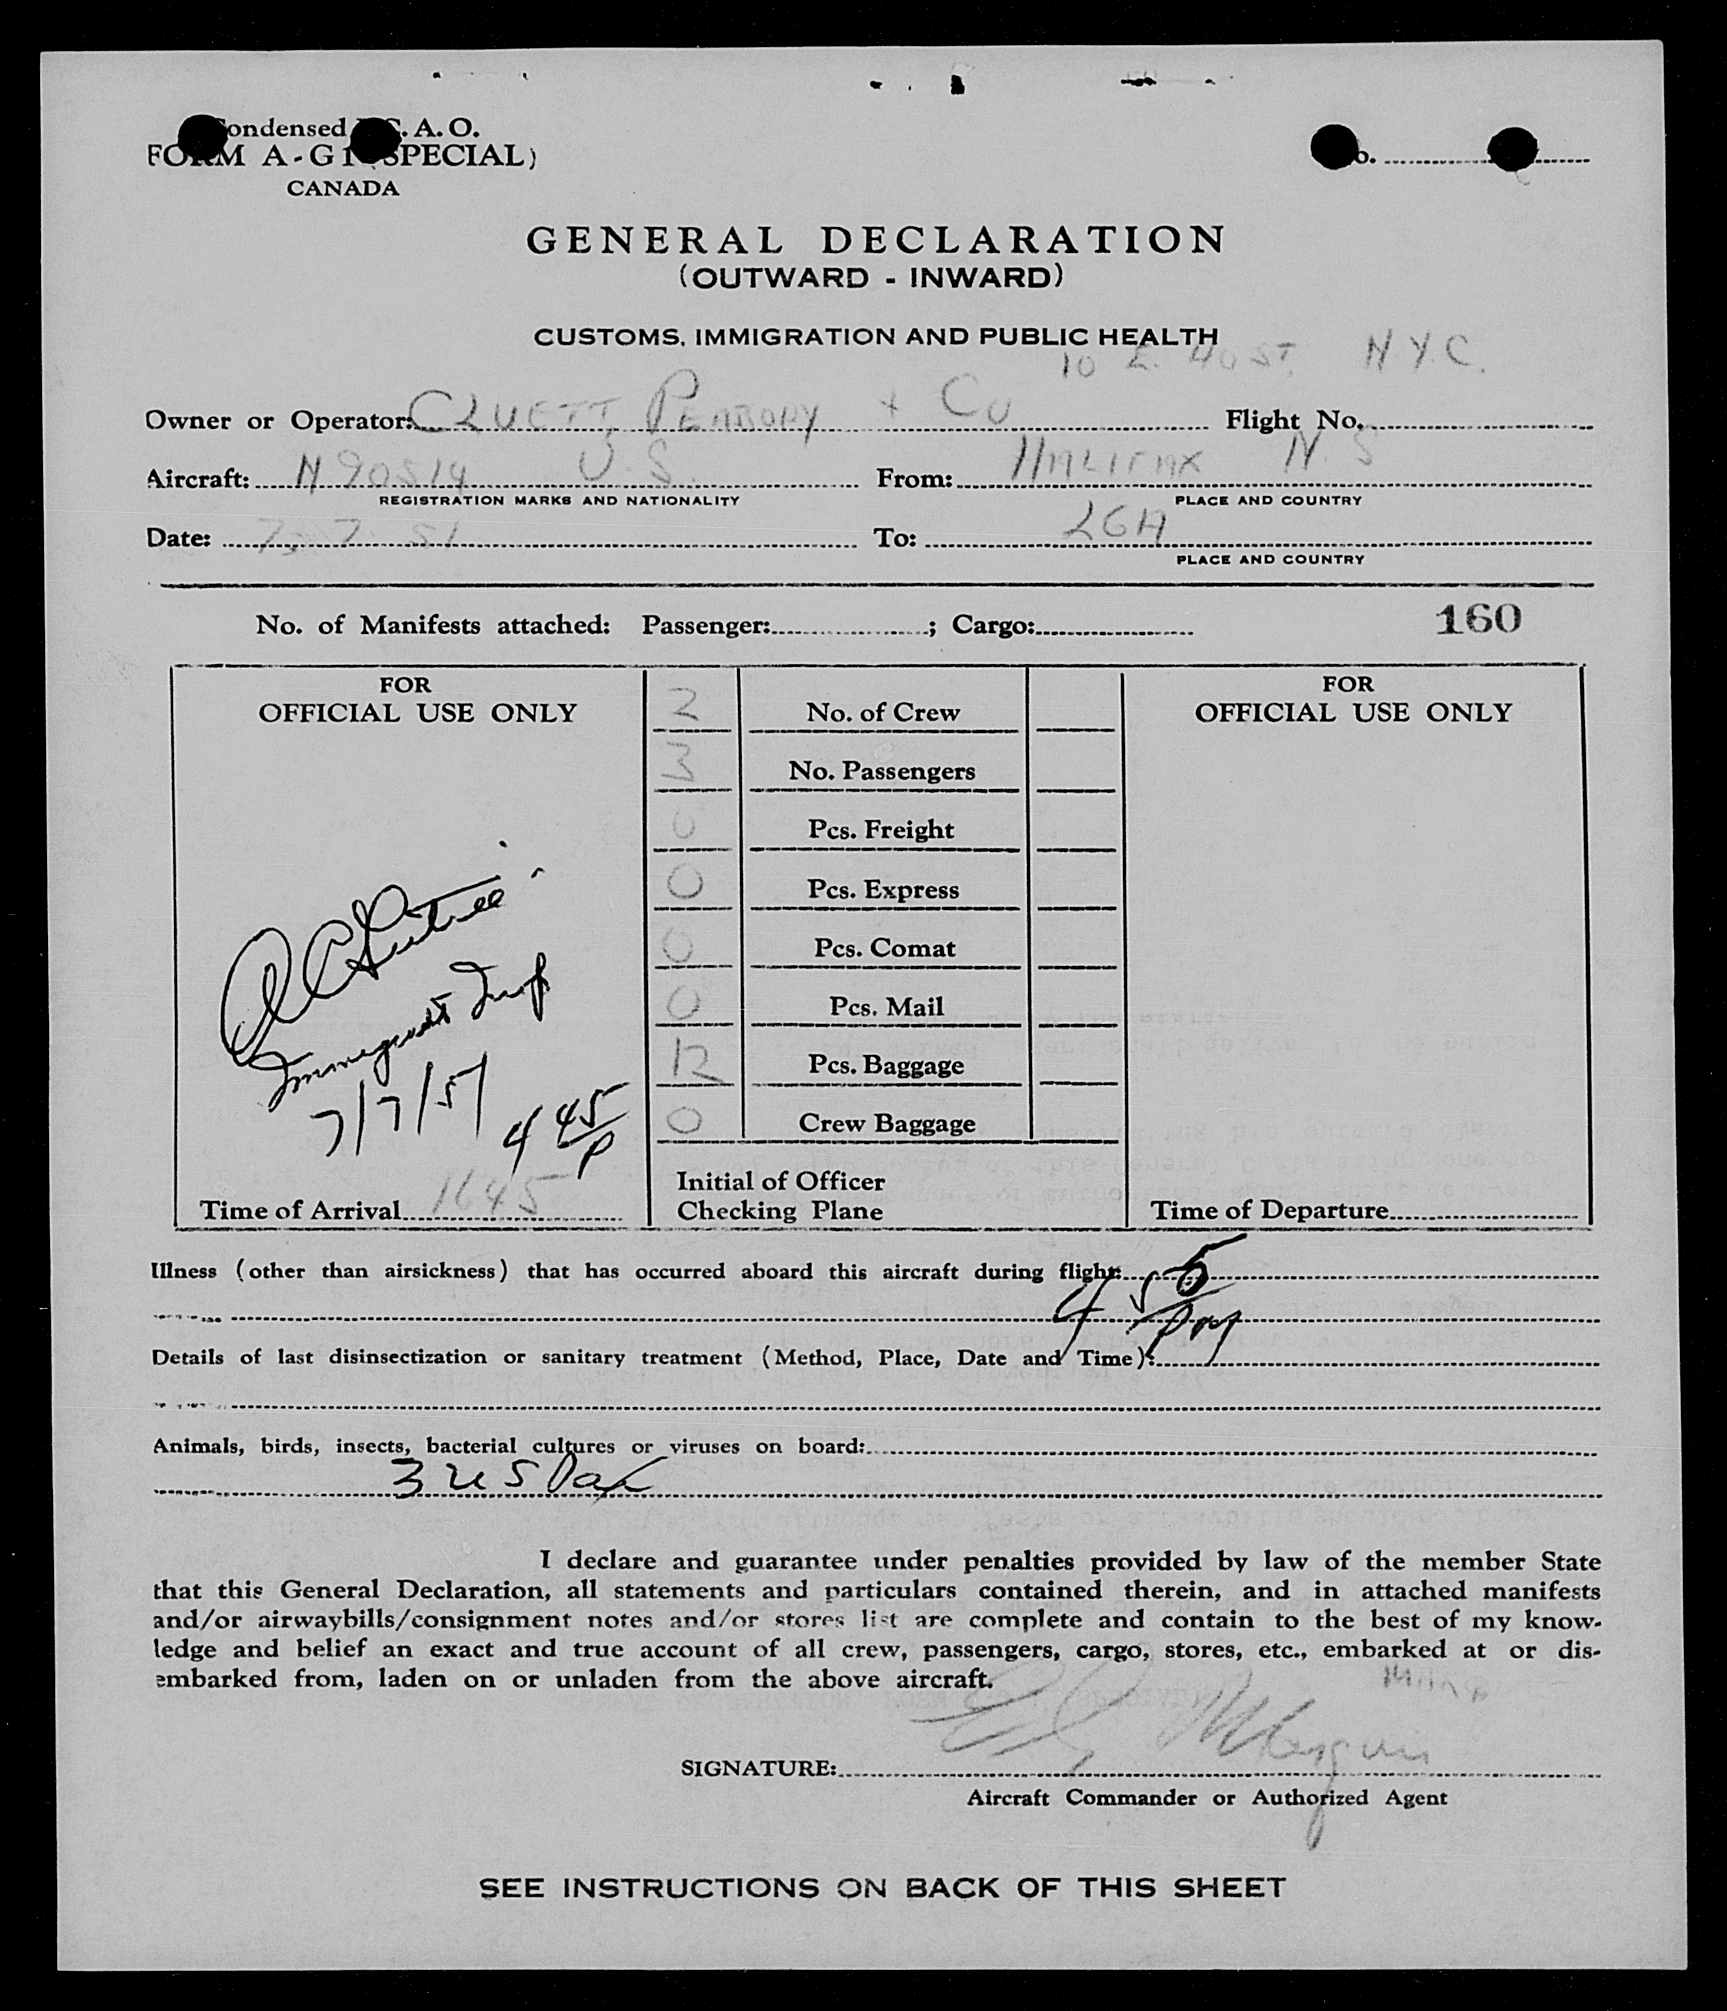 Condensed I.C.A.O.
FORM A-G1 (SPECIAL)
CANADA
No.
GENERAL DECLARATION
(OUTWARD - INWARD)
CUSTOMS, IMMIGRATION AND PUBLIC HEALTH
10 E. 40 ST. N.Y.C.
Owner or Operator: CLUETT PEABODY + CO Flight No.
Aircraft: N90514 U.S. From: HALIFAX N.S
REGISTRATION MARKS AND NATIONALITY PLACE AND COUNTRY
Date: 7, 7 51 To: LGA
PLACE AND COUNTRY
No. of Manifests attached: Passenger: ; Cargo: 160
FOR
OFFICIAL USE ONLY
2 No. of Crew
3 No. Passengers
0 Pcs. Freight
0 Pcs. Express
0 Pcs. Comat
0 Pcs. Mail
12 Pcs. Baggage
0 Crew Baggage
Immigrant Insp
7/7/51
4 45 P
Time of Arrival 1645
Initial of Officer
Checking Plane
FOR
OFFICIAL USE ONLY
Time of Departure
Illness (other than airsickness) that has occurred aboard this aircraft during flight:
4 55 pm
Details of last disinsectization or sanitary treatment (Method, Place, Date and Time):
Animals, birds, insects, bacterial cultures or viruses on board:
3 US Pax
I declare and guarantee under penalties provided by law of the member State
that this General Declaration, all statements and particulars contained therein, and in attached manifests
and/or airwaybills/consignment notes and/or stores list are complete and contain to the best of my know-
ledge and belief an exact and true account of all crew, passengers, cargo, stores, etc., embarked at or dis-
embarked from, laden on or unladen from the above aircraft.
SIGNATURE:
Aircraft Commander or Authorized Agent
SEE INSTRUCTIONS ON BACK OF THIS SHEET